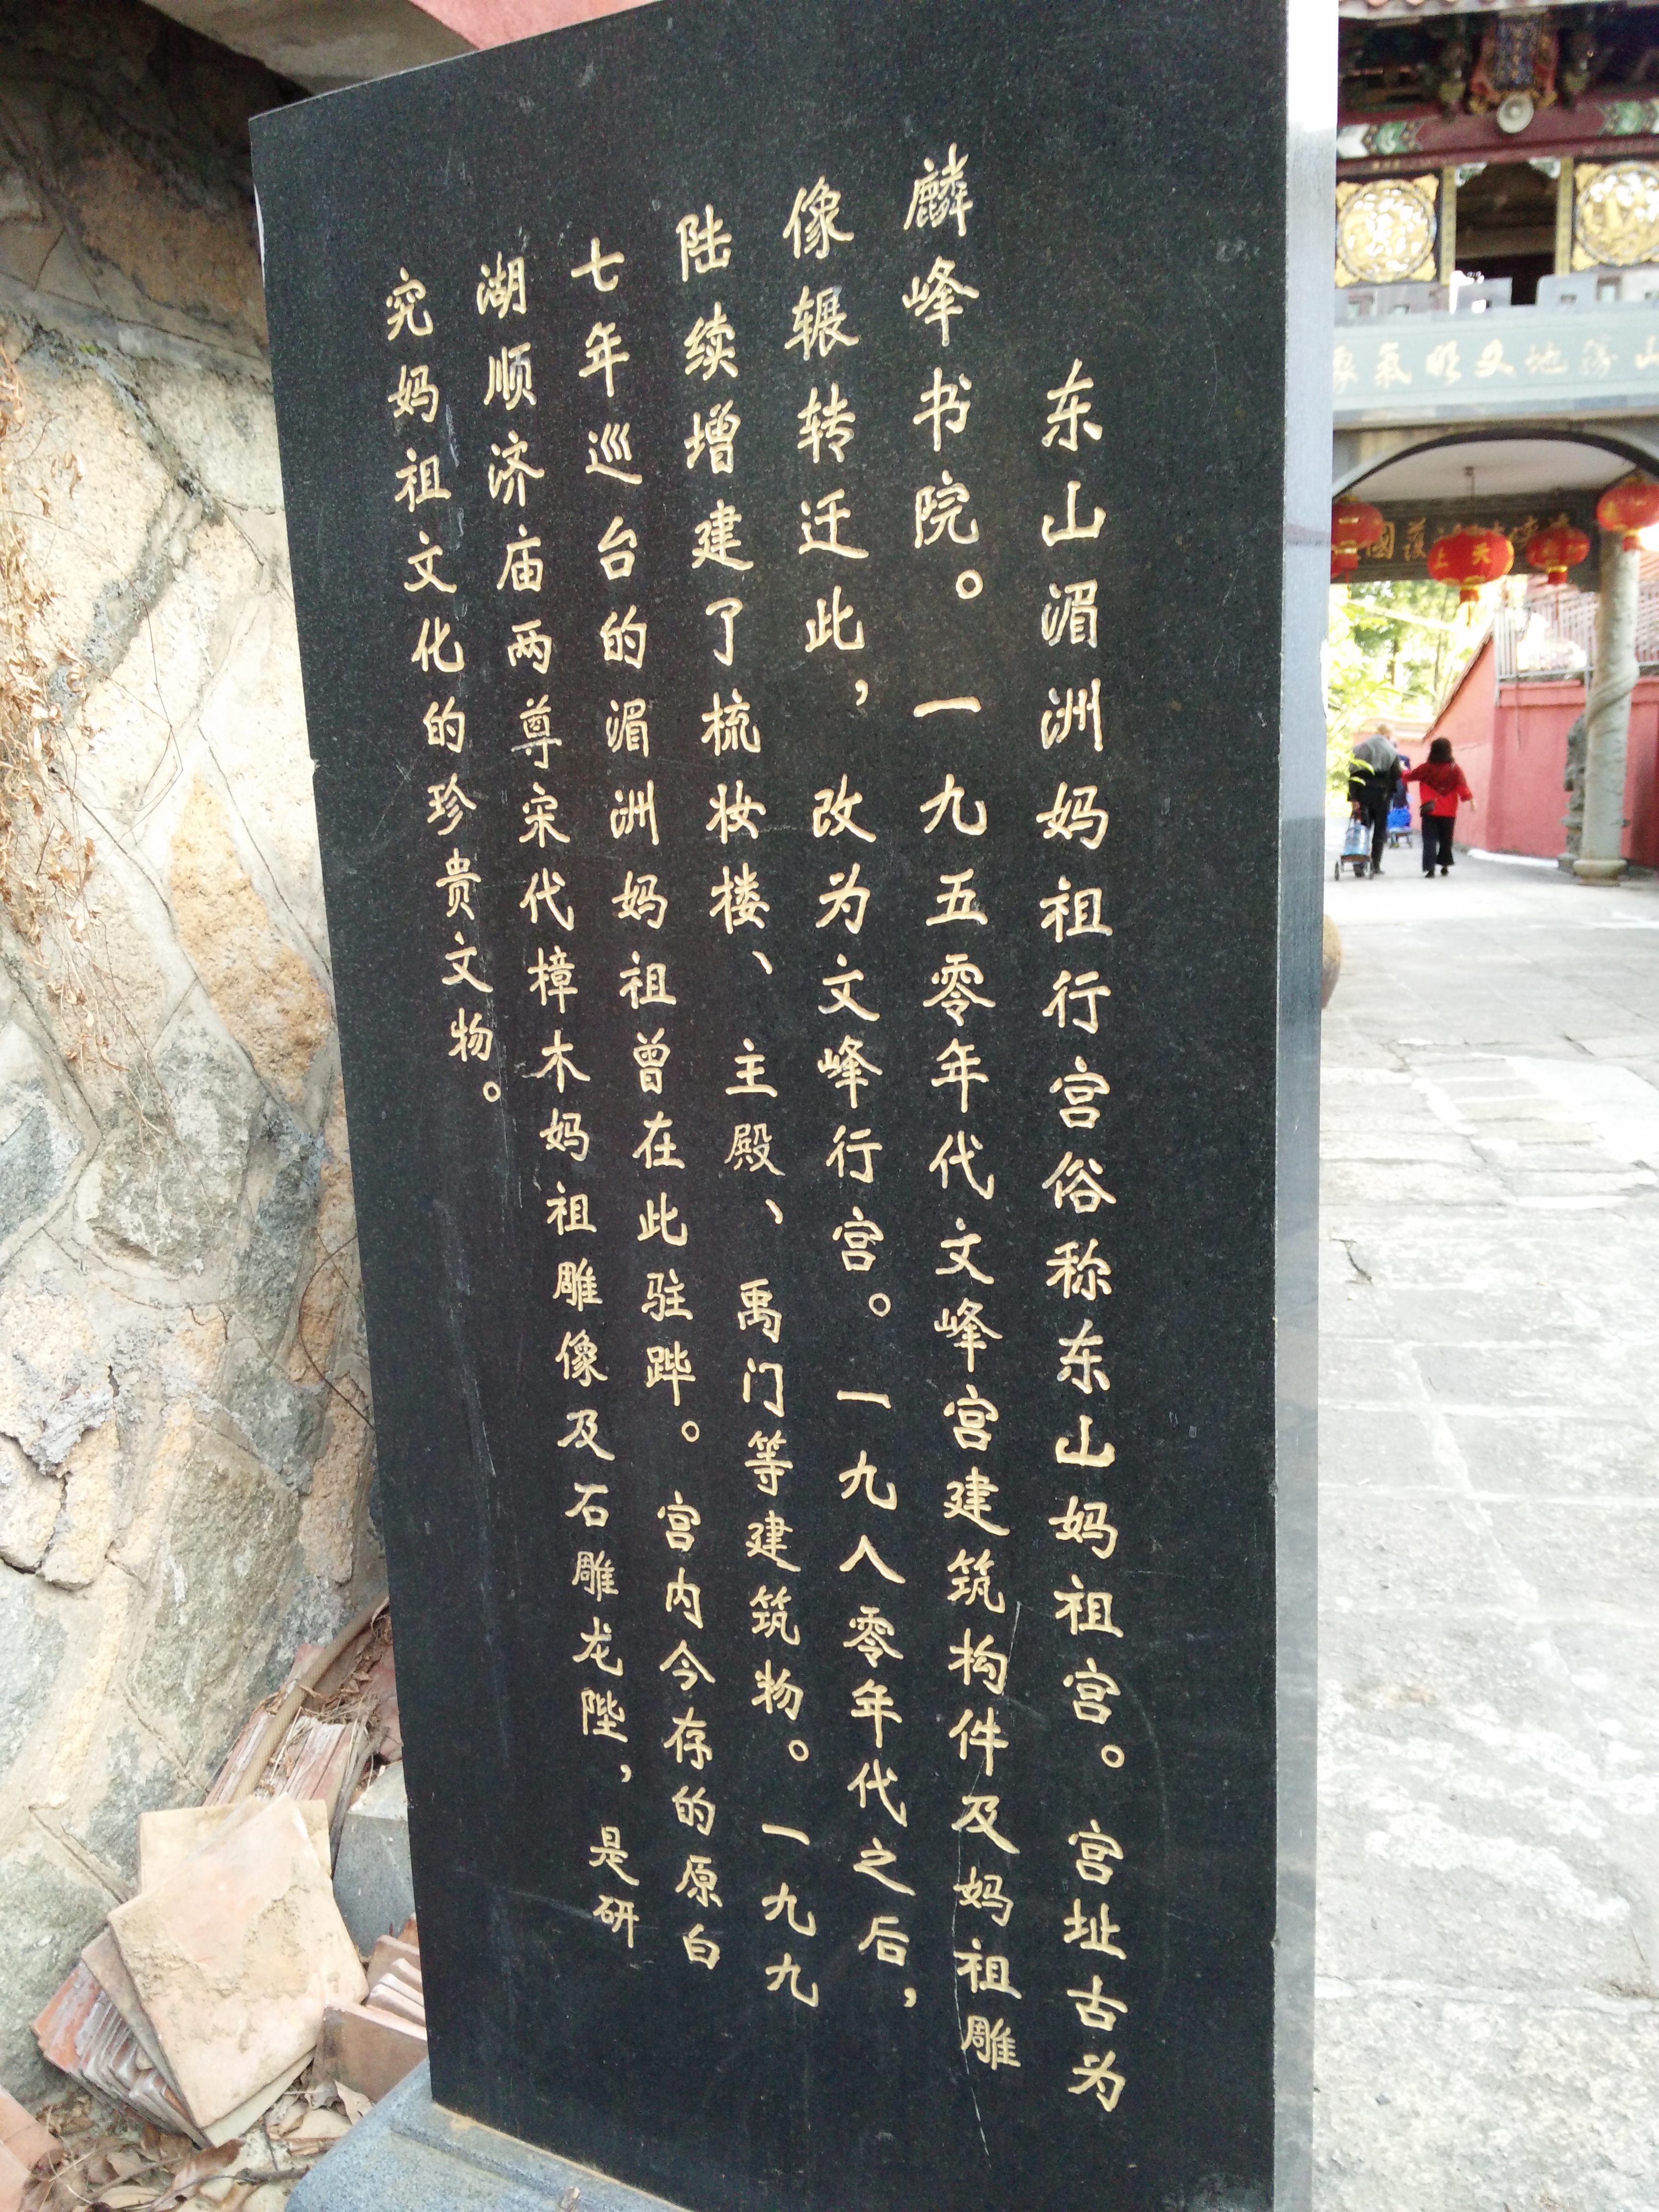 东山湄洲妈祖行宫俗称东山妈祖宫。宫址古为
麟峰书院。一九五零年代文峰宫建筑构件及妈祖雕
像辗转迁此，改为文峰行宫。一九八零年代之后，
陆续增建了梳妆楼、主殿、禹门等建筑物。一九九
七年巡台的湄洲妈祖曾在此驻跸。宫内今存的原白
湖顺济庙两尊宋代樟木妈祖雕像及石雕龙陛，是研
究妈祖文化的珍贵文物。